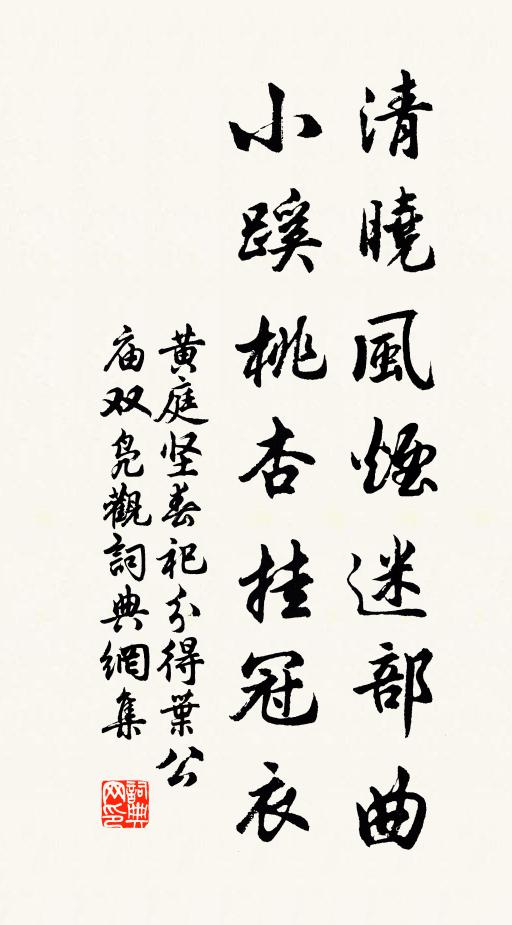 清曉風煙迷部曲
小蹊桃杏挂冠衣
黄庭坚春祀分得葉公
庙双凫觀詞典網集
詞典网印